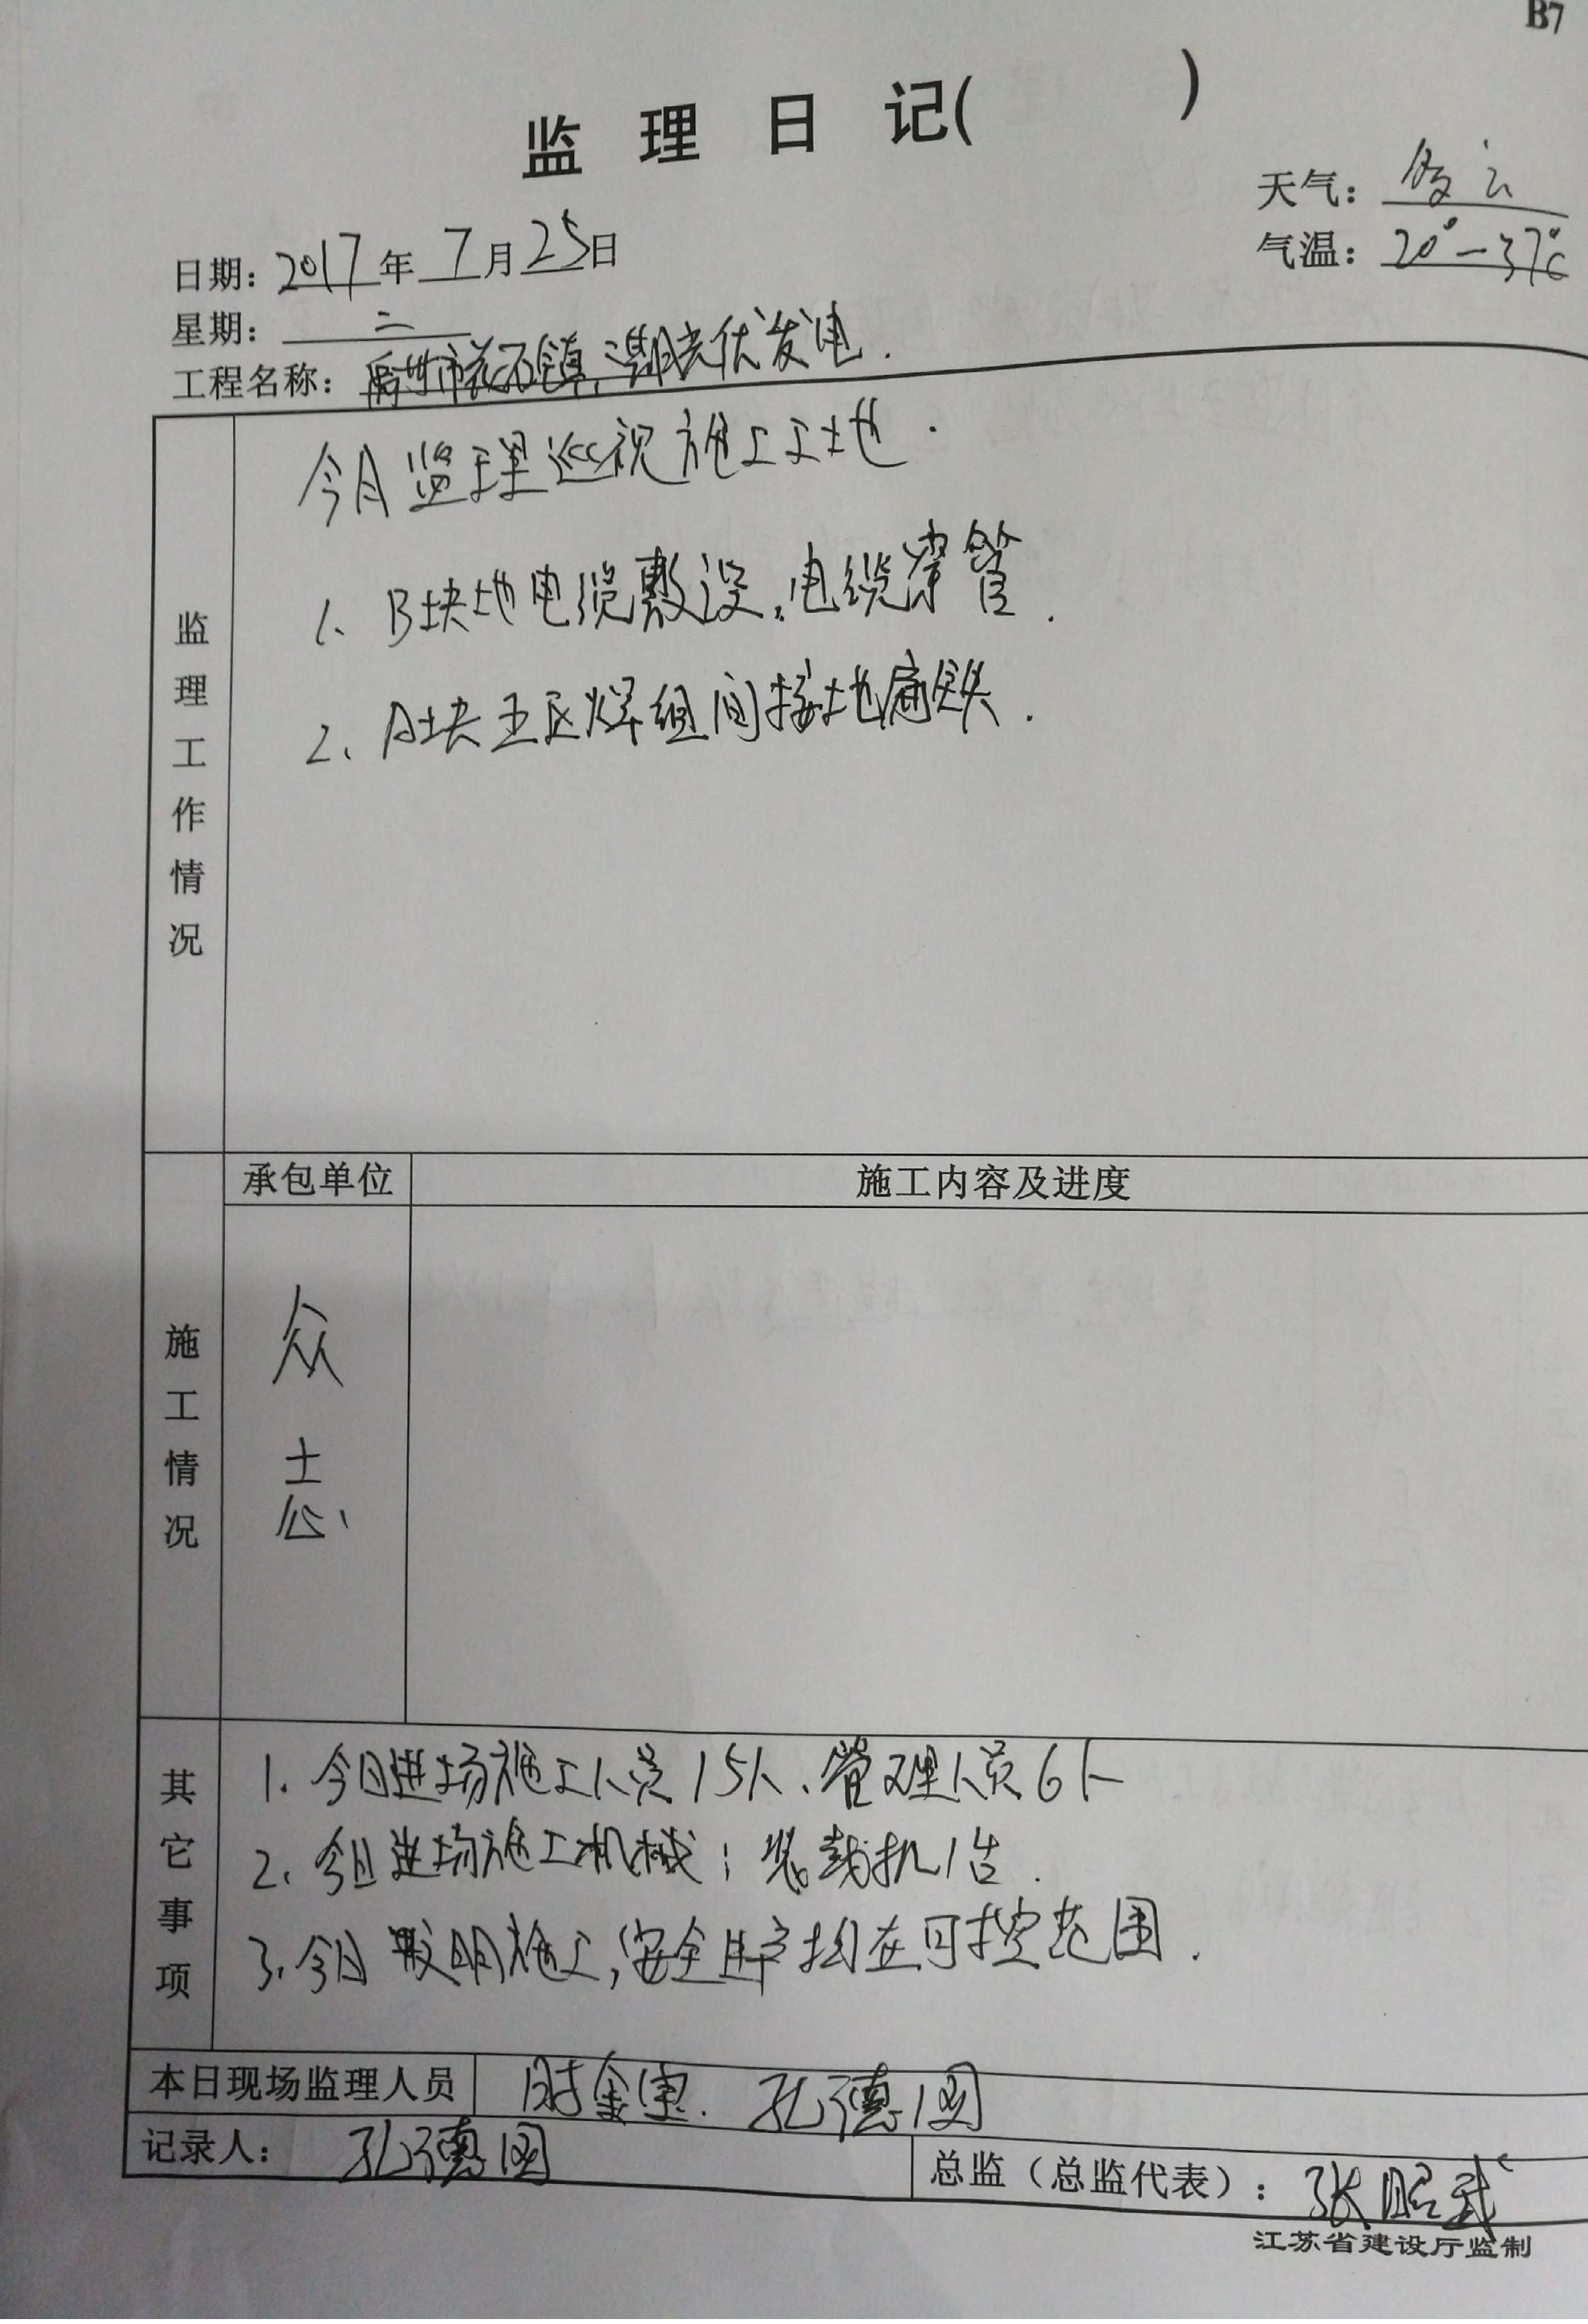 B7
监理日记( )
天气：多云
气温：20°-37℃
日期：2017年7月25日
星期：二
工程名称：禹州市花石镇 光伏发电.
监理工作情况
今日监理巡视施工工地.
1、B块地电缆敷设,电缆穿管.
2、A块五区焊组间接地扁铁.
施工情况
承包单位
施工内容及进度
众志
其它事项
1.今日进场施工人员15人、管理人员6人
2.今日进场施工机械;装载机1台.
3.今日 明施工,安全生产均在可控范围.
本日现场监理人员 时金宝. 孔德国
记录人：孔德国
总监（总监代表）：张昭武
江苏省建设厅监制